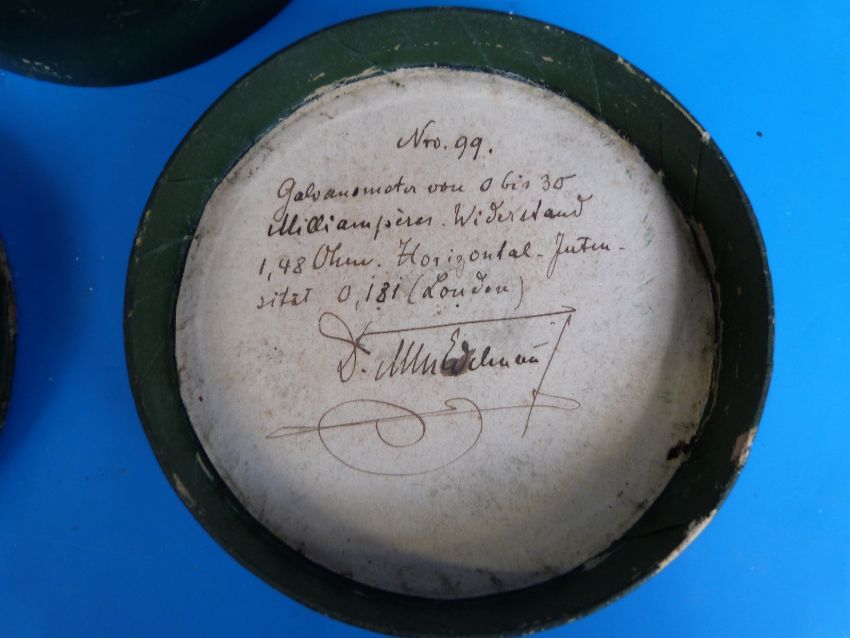 Nro. 99.
Galvanometer von 0 bis 30
Milliampères. Widerstand
1,48 Ohm. Horizontal-Inten-
sität 0,181 (London)
Dr. M Th Edelmann